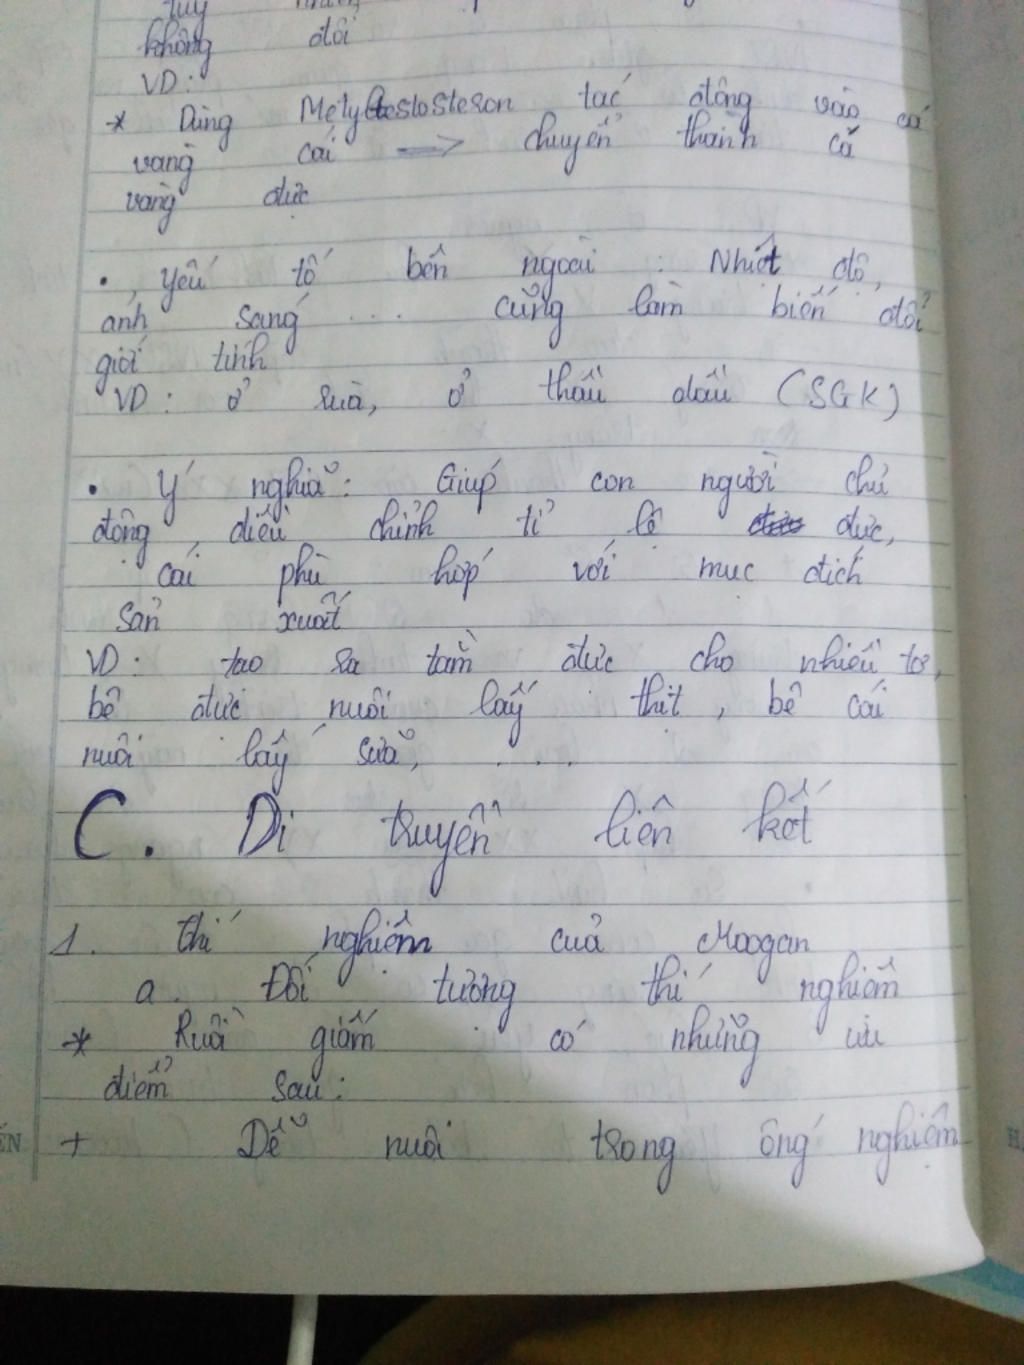 không đổi
VD:
* Dùng Metyltestosteson tác động vào cá
vàng cái => chuyển thành cá
vàng đực
• Yếu tố bên ngoài : Nhiệt độ,
ánh sáng ... cũng làm biến đổi
giới tính
VD: ở rùa, ở thầu dầu (SGK)
• Ý nghĩa: Giúp con người chủ
động điều chỉnh tỉ lệ đực,
cái phù hợp với mục đích
sản xuất
VD: tạo ra tằm đực cho nhiều tơ,
bê đực nuôi lấy thịt, bê cái
nuôi lấy sữa, ...
C. Di truyền liên kết
1. Thí nghiệm của Moogan
a. Đối tượng thí nghiệm
* Ruồi giấm có những ưu
điểm sau:
+ Dễ nuôi trong ống nghiệm
ẾN
H